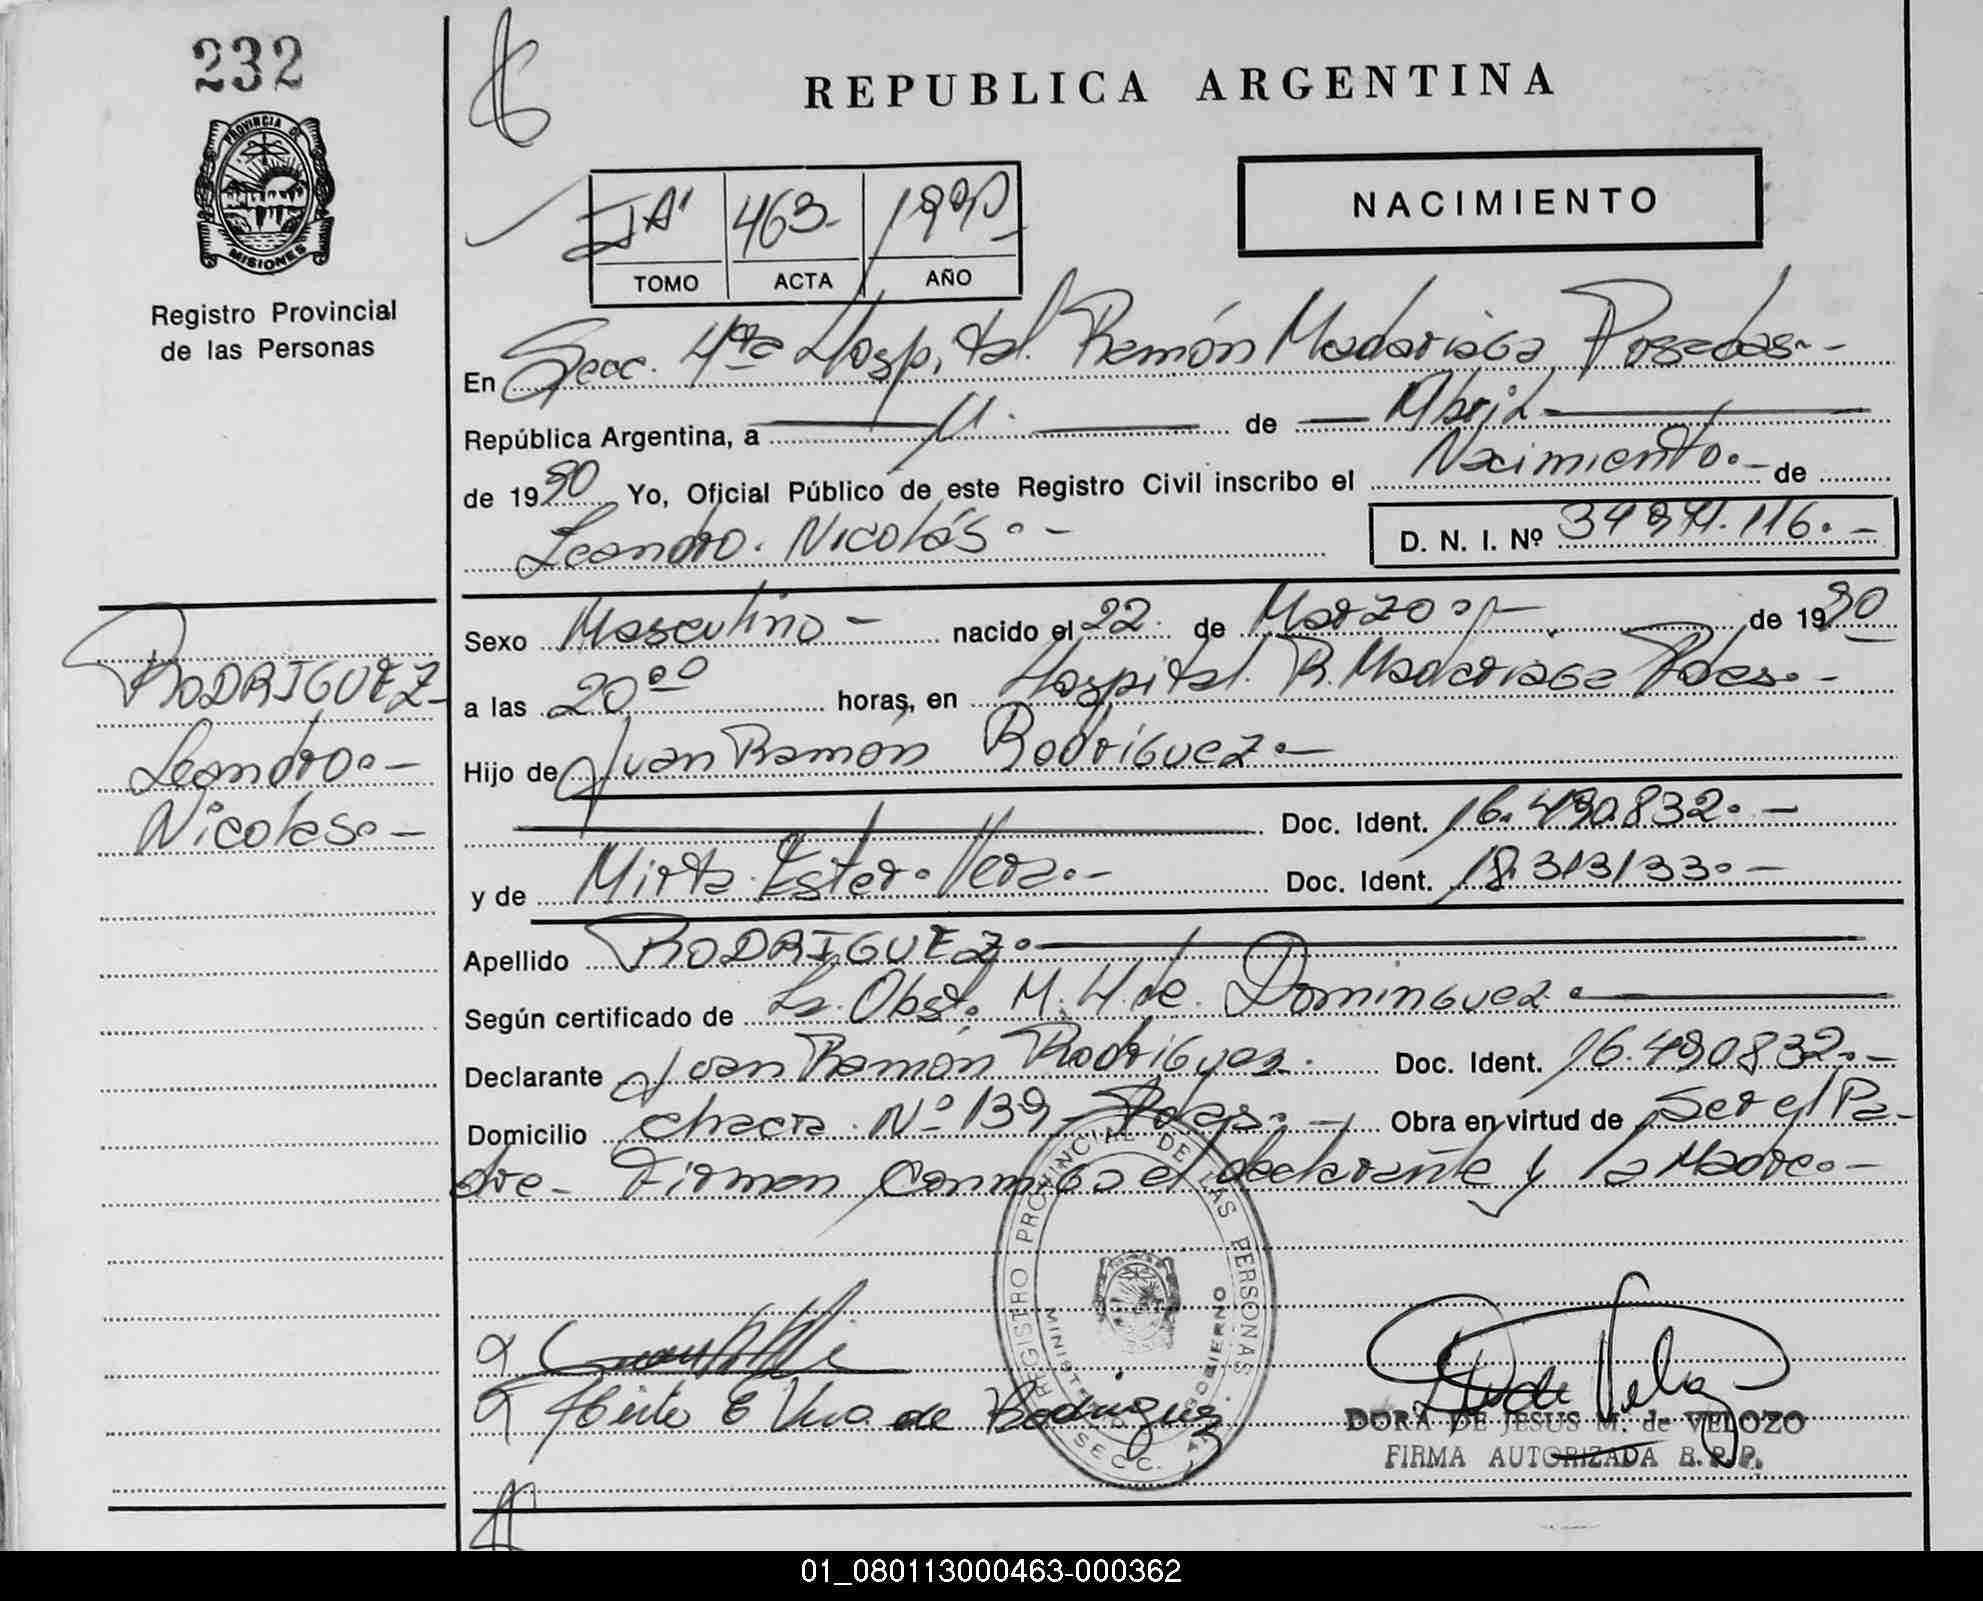 232
PROVINCIA DE
MISIONES
Registro Provincial
de las Personas
REPUBLICA ARGENTINA
NACIMIENTO
IA' 463.- 1990
TOMO ACTA AÑO
En Secc. 4ta Hospital. Ramón Madariaga Posadas.-
República Argentina, a 11. de Abril
de 1990 Yo, Oficial Público de este Registro Civil inscribo el Nacimiento.- de
Leandro. Nicolás.-
D. N. I. Nº 34 971.116.-
Sexo Masculino - nacido el 22. de Marzo.- de 1990
a las 20⁰⁰ horas, en Hospital. R. Madariaga Pdas.-
Hijo de Juan Ramón Rodríguez.-
Doc. Ident. 16.490.832.-
y de Mirta Ester. Vera.- Doc. Ident. 18.313133.-
Apellido RODRIGUEZ.
Según certificado de La. Obst. M. H. de. Dominguez.
Declarante Juan Ramón Rodriguez. Doc. Ident. 16.490832.-
Domicilio chacra. Nº 139 - Pdas.- Obra en virtud de Ser el Pa-
dre- Firman Conmigo el declarante y la Madre.-
RODRIGUEZ-
Leandro.-
Nicolas.-
REGISTRO PROVINCIAL DE LAS PERSONAS
GOBIERNO
SECC.
Mirta E Vera de Rodriguez
DORA DE JESUS M. de VELOZO
FIRMA AUTORIZADA R.P.P.
01_080113000463-000362